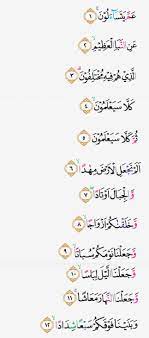 عَمَّ يَتَسَاءَلُونَ ١
عَنِ النَّبَإِ الْعَظِيمِ ٢
الَّذِي هُمْ فِيهِ مُخْتَلِفُونَ ٣
كَلَّا سَيَعْلَمُونَ ٤
ثُمَّ كَلَّا سَيَعْلَمُونَ ٥
أَلَمْ نَجْعَلِ الْأَرْضَ مِهَادًا ٦
وَالْجِبَالَ أَوْتَادًا ٧
وَخَلَقْنَاكُمْ أَزْوَاجًا ٨
وَجَعَلْنَا نَوْمَكُمْ سُبَاتًا ٩
وَجَعَلْنَا اللَّيْلَ لِبَاسًا ١٠
وَجَعَلْنَا النَّهَارَ مَعَاشًا ١١
وَبَنَيْنَا فَوْقَكُمْ سَبْعًا شِدَادًا ١٢